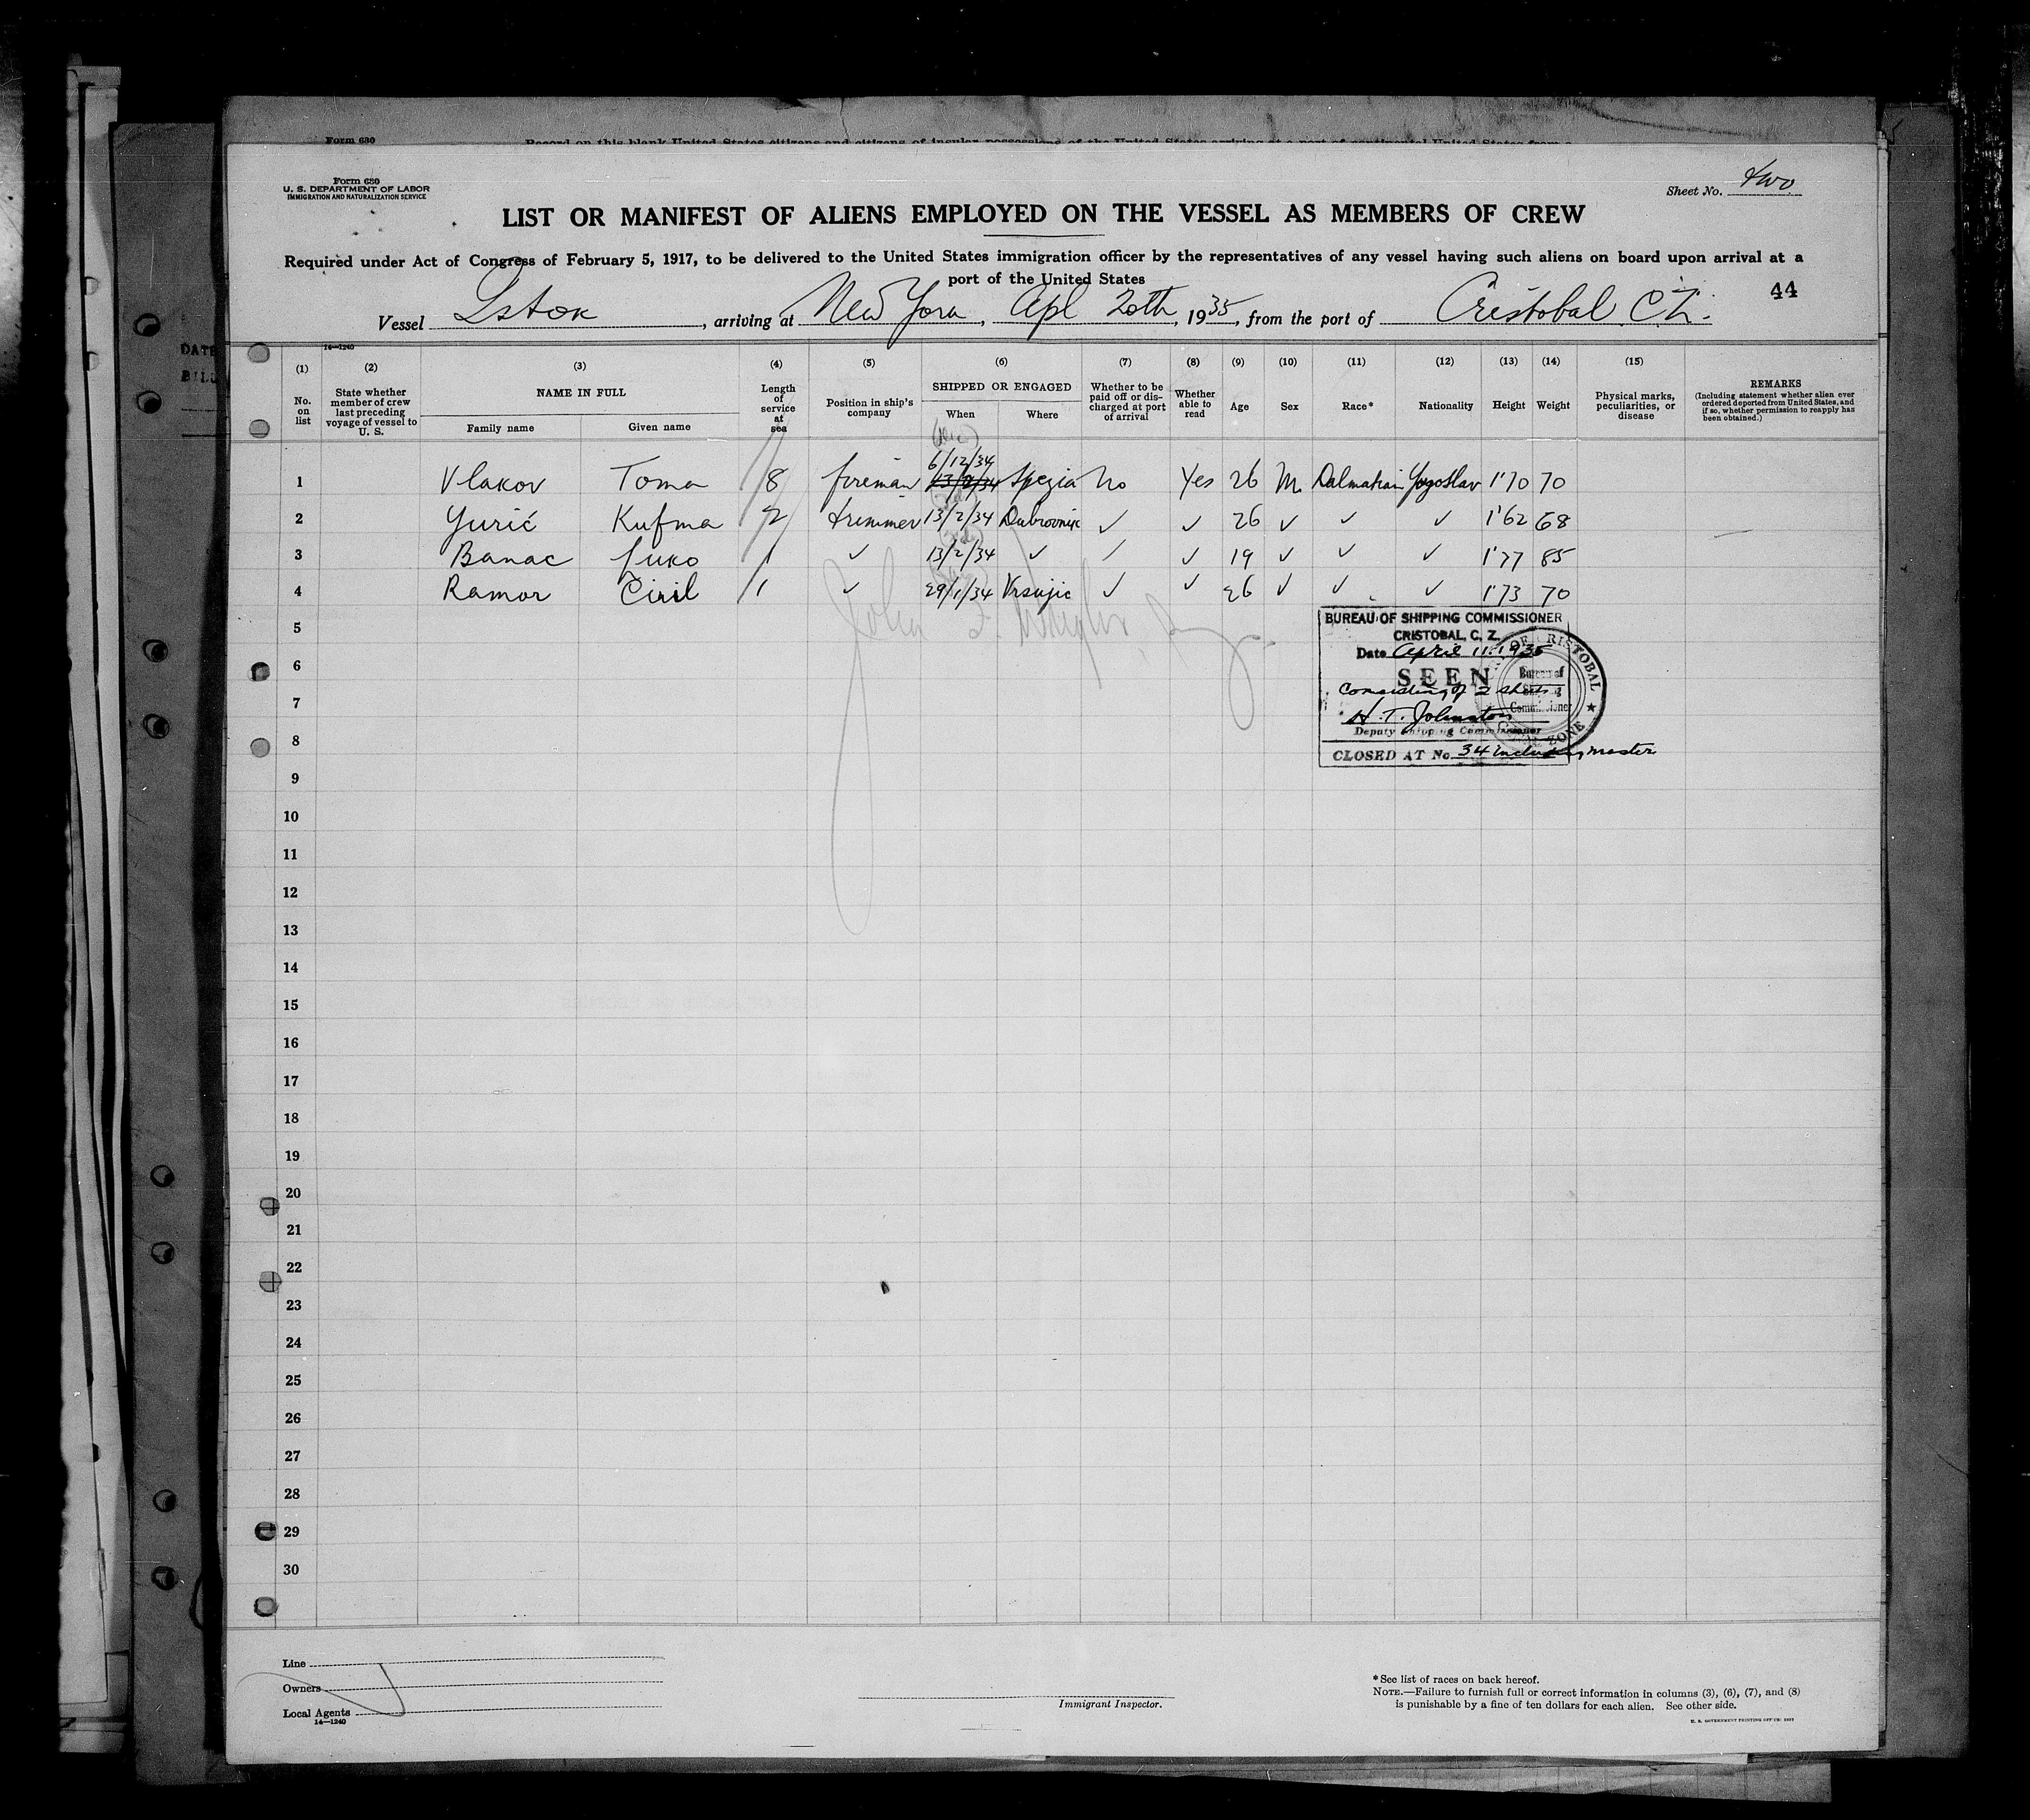 Form 630
Record on this blank United States citizens and citizens of insular possessions of the United States arriving at a port of continental United States from a
DATE
Form 630
U. S. DEPARTMENT OF LABOR
IMMIGRATION AND NATURALIZATION SERVICE
Sheet No. two
LIST OR MANIFEST OF ALIENS EMPLOYED ON THE VESSEL AS MEMBERS OF CREW
Required under Act of Congress of February 5, 1917, to be delivered to the United States immigration officer by the representatives of any vessel having such aliens on board upon arrival at a
port of the United States
44
Vessel Istok, arriving at New York, Apl 20th, 1935, from the port of Cristobal C.Z.
14—1240
(1) (2) (3) (4) (5) (6) (7) (8) (9) (10) (11) (12) (13) (14) (15)
No. on list
State whether member of crew last preceding voyage of vessel to U. S.
NAME IN FULL
Family name Given name
Length of service at sea
Position in ship's company
SHIPPED OR ENGAGED
When Where
Whether to be paid off or discharged at port of arrival
Whether able to read
Age Sex Race* Nationality Height Weight
Physical marks, peculiarities, or disease
REMARKS
(Including statement whether alien ever ordered deported from United States, and if so, whether permission to reapply has been obtained.)
1 Vlakov Toma 8 fireman 6/12/34 13/2/34 Spezia No Yes 26 M. Dalmatian Yogoslav 1'70 70
2 Yurić Kufma 2 trimmer 13/2/34 Dubrovnik ✓ ✓ 26 ✓ ✓ ✓ 1'62 68
3 Banac Luko 1 ✓ 13/2/34 ✓ ✓ ✓ 19 ✓ ✓ ✓ 1'77 85
4 Ramor Ciril 1 ✓ 29/1/34 Vrsujic ✓ ✓ 26 ✓ ✓ ✓ 1'73 70
5
6
7
8
9
10
11
12
13
14
15
16
17
18
19
20
21
22
23
24
25
26
27
28
29
30
BUREAU OF SHIPPING COMMISSIONER
CRISTOBAL, C. Z.
Date April 11. 1935
SEEN
Consisting of 2 sheets
H. T. Johnston
Deputy Shipping Commissioner
CLOSED AT No. 34 including master
OF CRISTOBAL
Bureau of
Shipping
Commissioner
CANAL ZONE
Line
Owners
Local Agents
14—1240
Immigrant Inspector.
*See list of races on back hereof.
NOTE.—Failure to furnish full or correct information in columns (3), (6), (7), and (8)
is punishable by a fine of ten dollars for each alien. See other side.